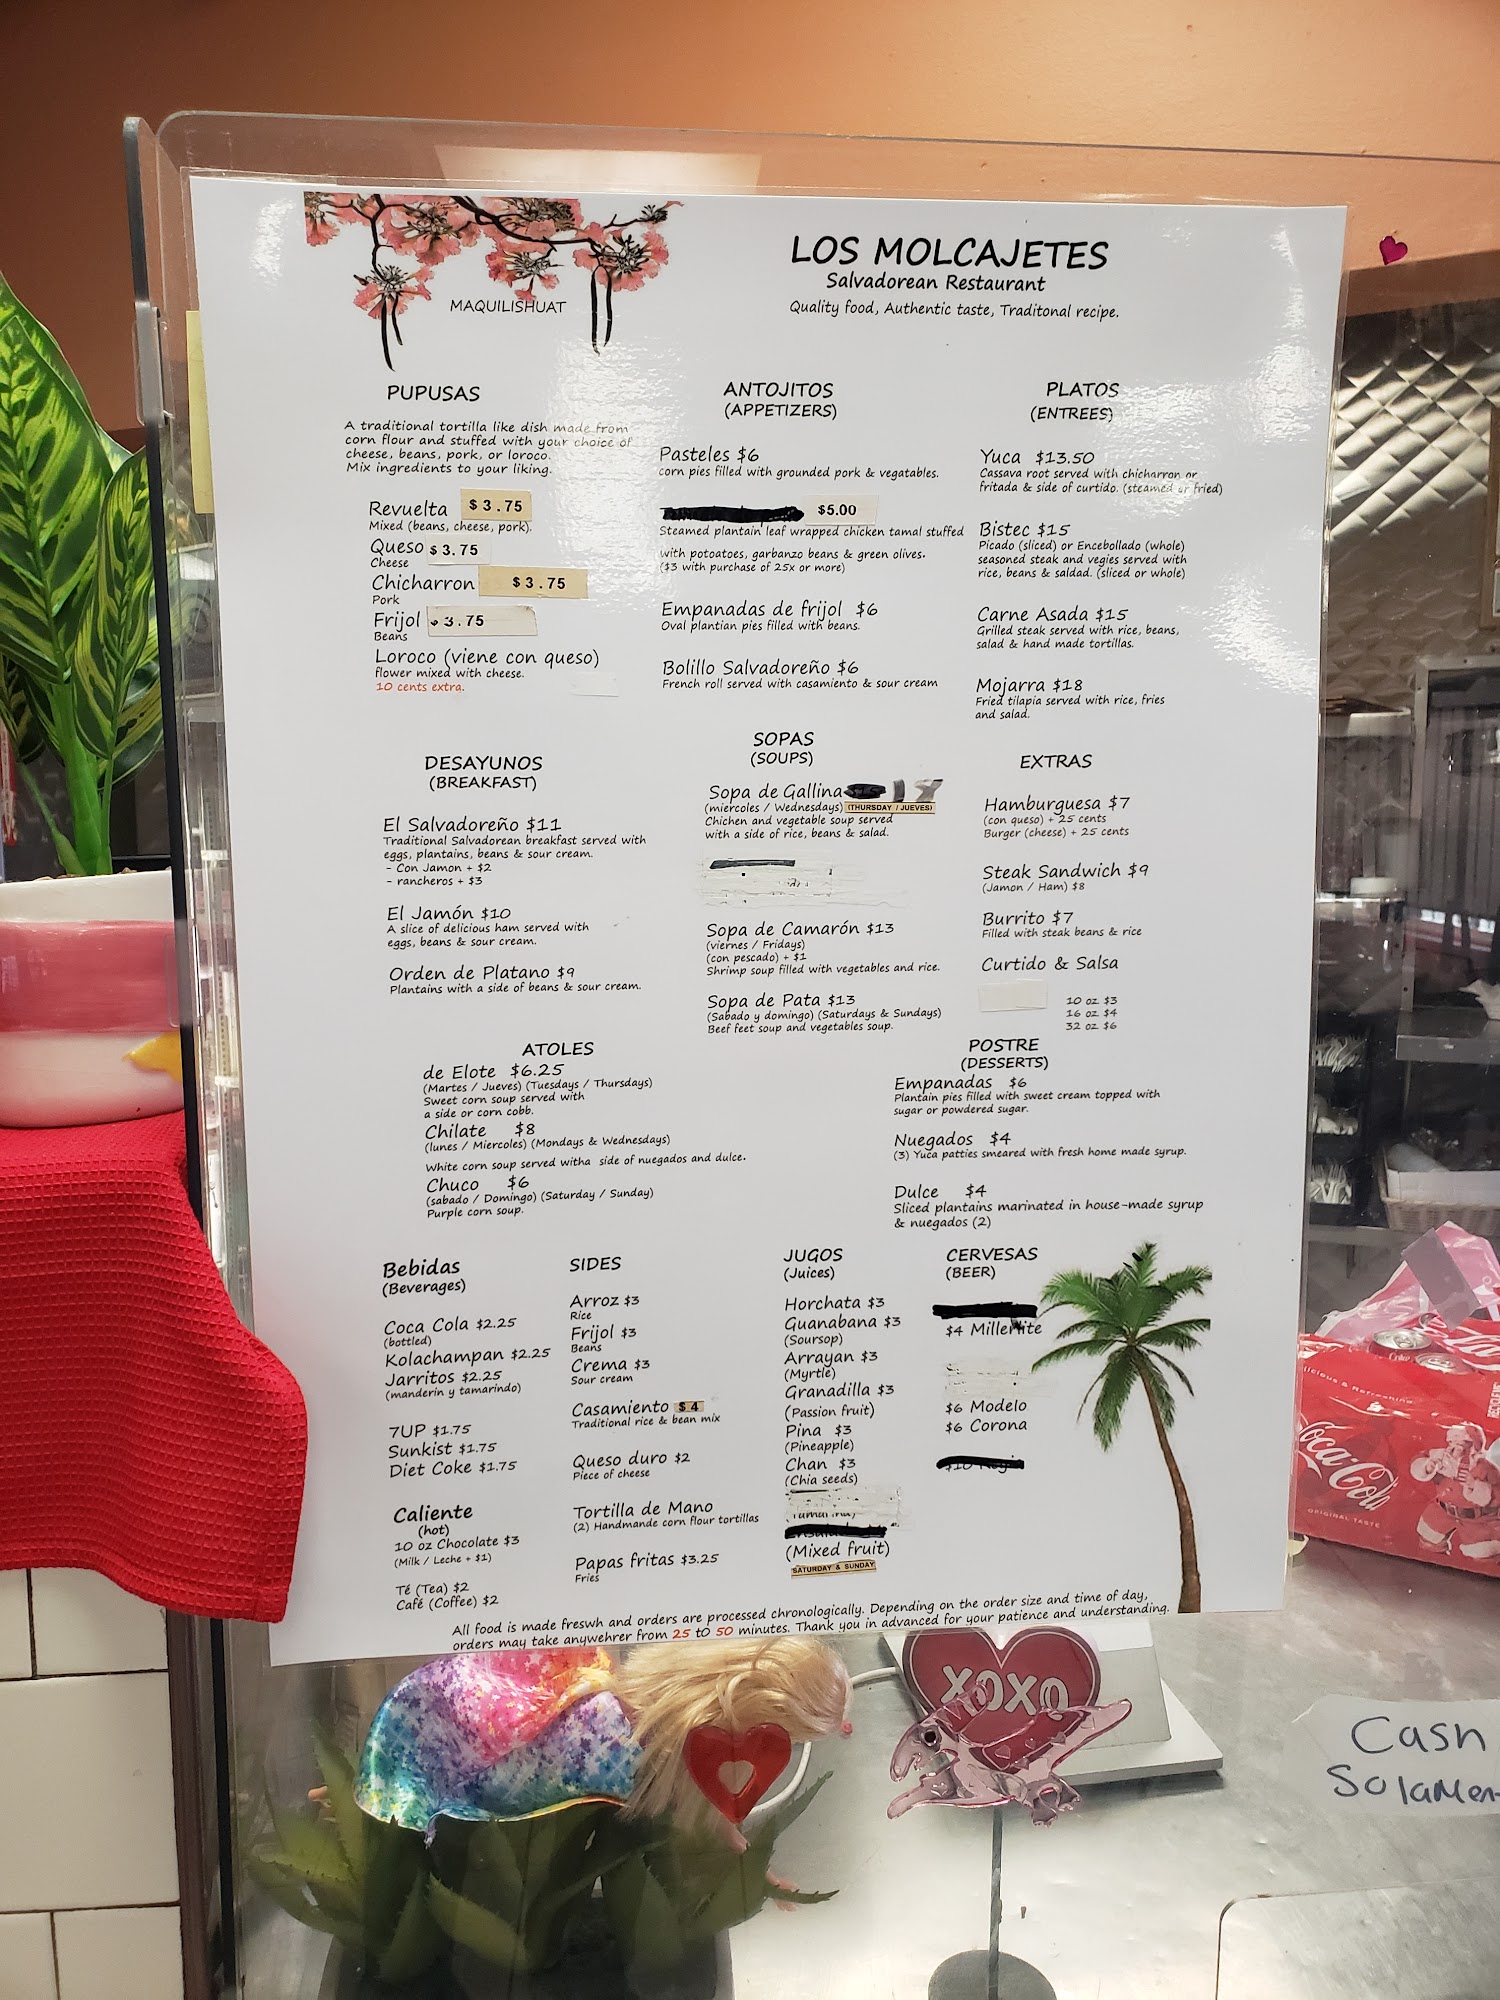 MAQUILISHUAT
LOS MOLCAJETES
Salvadorean Restaurant
Quality food, Authentic taste, Traditonal recipe.
PUPUSAS
A traditional tortilla like dish made from
corn flour and stuffed with your choice of
cheese, beans, pork, or loroco.
Mix ingredients to your liking.
Revuelta $3.75
Mixed (beans, cheese, pork).
Queso $3.75
Cheese
Chicharron $3.75
Pork
Frijol 3.75
Beans
Loroco (viene con queso)
flower mixed with cheese.
10 cents extra.
ANTOJITOS
(APPETIZERS)
Pasteles $6
corn pies filled with grounded pork & vegatables.
$5.00
Steamed plantain leaf wrapped chicken tamal stuffed
with potoatoes, garbanzo beans & green olives.
($3 with purchase of 25x or more)
Empanadas de frijol $6
Oval plantian pies filled with beans.
Bolillo Salvadoreño $6
French roll served with casamiento & sour cream
PLATOS
(ENTREES)
Yuca $13.50
Cassava root served with chicharron or
fritada & side of curtido. (steamed or fried)
Bistec $15
Picado (sliced) or Encebollado (whole)
seasoned steak and vegies served with
rice, beans & saldad. (sliced or whole)
Carne Asada $15
Grilled steak served with rice, beans,
salad & hand made tortillas.
Mojarra $18
Fried tilapia served with rice, fries
and salad.
DESAYUNOS
(BREAKFAST)
El Salvadoreño $11
Traditional Salvadorean breakfast served with
eggs, plantains, beans & sour cream.
- Con Jamon + $2
- rancheros + $3
El Jamón $10
A slice of delicious ham served with
eggs, beans & sour cream.
Orden de Platano $9
Plantains with a side of beans & sour cream.
SOPAS
(SOUPS)
Sopa de Gallina
(miercoles / Wednesdays) (THURSDAY / JUEVES)
Chichen and vegetable soup served
with a side of rice, beans & salad.
Sopa de Camarón $13
(viernes / Fridays)
(con pescado) + $1
Shrimp soup filled with vegetables and rice.
Sopa de Pata $13
(Sabado y domingo) (Saturdays & Sundays)
Beef feet soup and vegetables soup.
EXTRAS
Hamburguesa $7
(con queso) + 25 cents
Burger (cheese) + 25 cents
Steak Sandwich $9
(Jamon / Ham) $8
Burrito $7
Filled with steak beans & rice
Curtido & Salsa
10 oz $3
16 oz $4
32 oz $6
ATOLES
de Elote $6.25
(Martes / Jueves) (Tuesdays / Thursdays)
Sweet corn soup served with
a side or corn cobb.
Chilate $8
(lunes / Miercoles) (Mondays & Wednesdays)
White corn soup served witha side of nuegados and dulce.
Chuco $6
(sabado / Domingo) (Saturday / Sunday)
Purple corn soup.
POSTRE
(DESSERTS)
Empanadas $6
Plantain pies filled with sweet cream topped with
sugar or powdered sugar.
Nuegados $4
(3) Yuca patties smeared with fresh home made syrup.
Dulce $4
Sliced plantains marinated in house-made syrup
& nuegados (2)
Bebidas
(Beverages)
Coca Cola $2.25
(bottled)
Kolachampan $2.25
Jarritos $2.25
(manderin y tamarindo)
7UP $1.75
Sunkist $1.75
Diet Coke $1.75
Caliente
(hot)
10 oz Chocolate $3
(Milk / Leche + $1)
Té (Tea) $2
Café (Coffee) $2
SIDES
Arroz $3
Rice
Frijol $3
Beans
Crema $3
Sour cream
Casamiento $4
Traditional rice & bean mix
Queso duro $2
Piece of cheese
Tortilla de Mano
(2) Handmande corn flour tortillas
Papas fritas $3.25
Fries
JUGOS
(Juices)
Horchata $3
Guanabana $3
(Soursop)
Arrayan $3
(Myrtle)
Granadilla $3
(Passion fruit)
Pina $3
(Pineapple)
Chan $3
(Chia seeds)
(Mixed fruit)
SATURDAY & SUNDAY
CERVESAS
(BEER)
$4 Millerlite
$6 Modelo
$6 Corona
All food is made freswh and orders are processed chronologically. Depending on the order size and time of day,
orders may take anywehrer from 25 to 50 minutes. Thank you in advanced for your patience and understanding.
XOXO
Cash
Coca-Cola
ORIGINAL TASTE